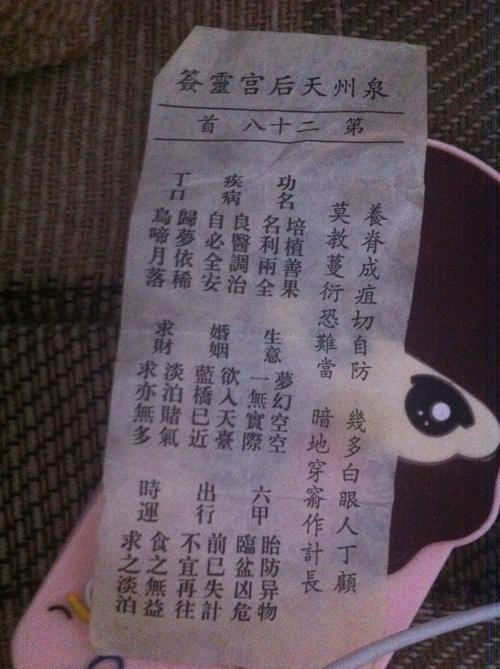 泉州天后宫靈簽
第二十八首
養脊成疽切自防 幾多白眼人丁顧
莫教蔓衍恐難當 暗地穿窬作計長
功名
培植善果
名利兩全
生意
夢幻空空
一無實際
六甲
胎防异物
臨盆凶危
疾病
良醫調治
自必全安
婚姻
欲入天臺
藍橋已近
出行
前已失計
不宜再往
丁口
歸夢依稀
烏啼月落
求財
淡泊賭氣
求亦無多
時運
食之無益
求之淡泊